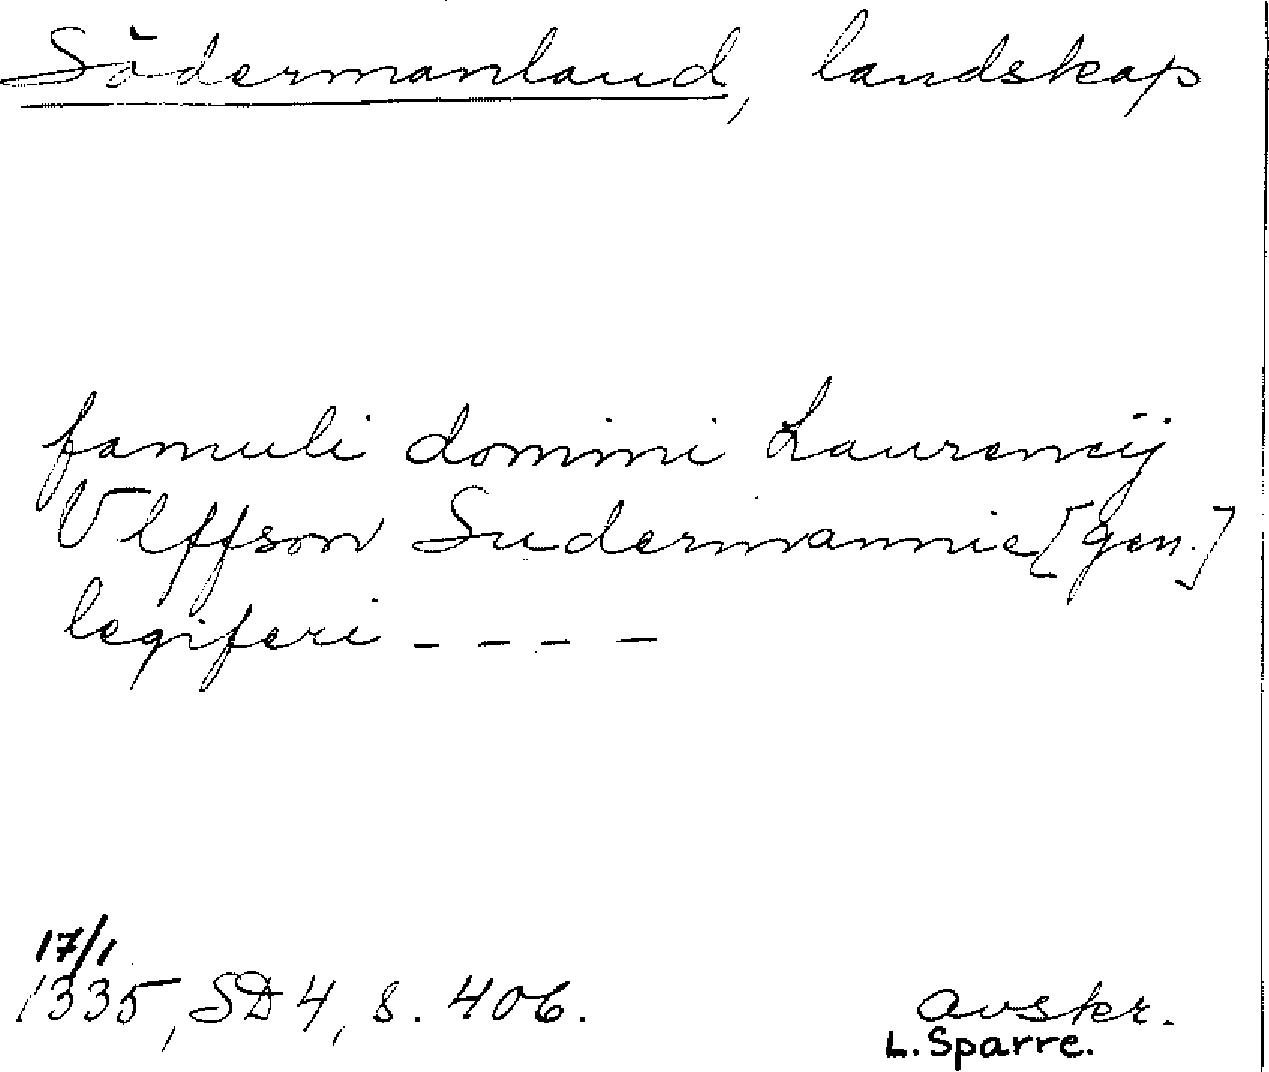 Södermanland, landskap
famuli domini Laurencij
Vlffson Sudermannie [gen.]
legiferi - - - -
17/1
1335, SD 4, s. 406.
avskr.
L. Sparre.